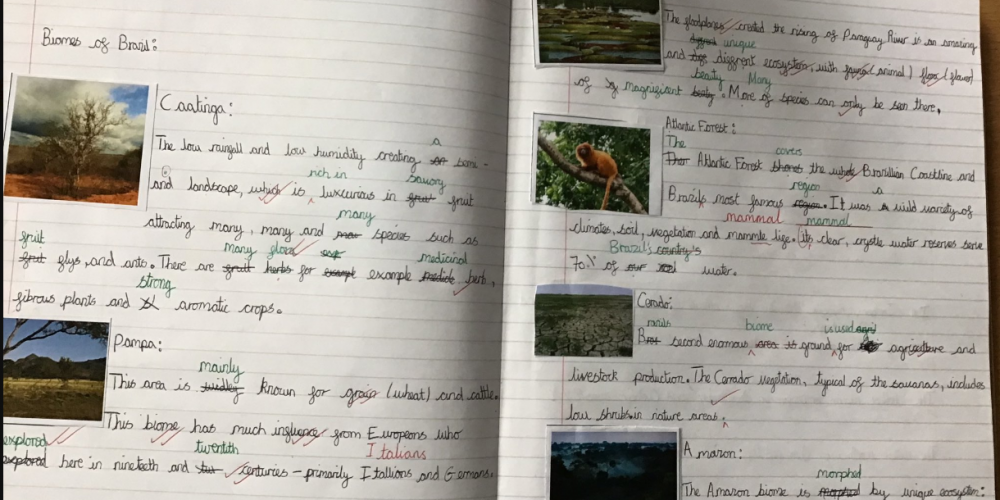 Biomes of Brazil:
Caatinga:
a
The low rainfall and low humidity creating semi-
rich in savory
and landscape, which is luxcurious in fruit fruit
many
attracting many, many and species such as
fruit many glora medicinal
flys, and ants. There are herbs for example herb,
strong
fibrous plants and aromatic crops.
Pampa:
mainly
This area is known for grain (wheat) and cattle.
This biome has much influence from Europeans who
explored twentith Italians
explored here in nineteeth and centuries - primarily Itallians and Germans.
The floodplanes created the rising of Paraguay River is an amazing
unique
and diffrent ecosystem, with (animal) flora (flower)
beauty Many
of magnifisant . More of species can only be seen there.
Atlantic Forest:
The covers
Atlantic Forest the whole Brazillian Coastline and
region a
Brazils most famous region. It was wild variety of
mammal mammal
climates, soil, vegetation and mammle life. its clear, crystle water reserves serve
Brazil's country's
70% of our water.
Cerado:
biome is used
second enormous area is ground for agriculture and
livestock production. The Cerrado vegetation, typical of the savanas, includes
low shrubs in nature areas.
Amazon:
morphed
The Amazon biome is morphed by unique ecosystem: